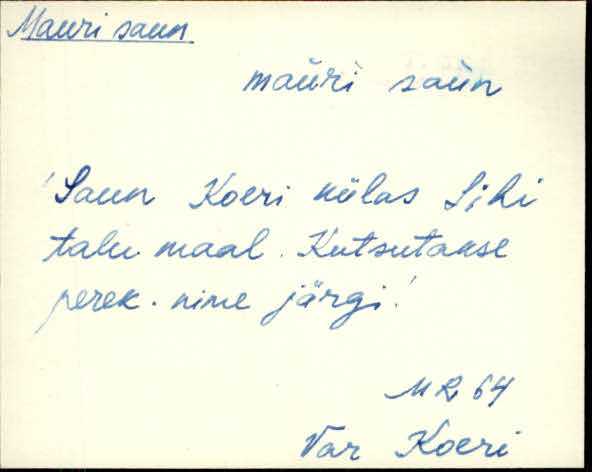 Mauri saun
maüri saün
'Saun Koeri külas Sihi
talu maal. Kutsutakse
perek. nime järgi.'
MR 64
Var Koeri